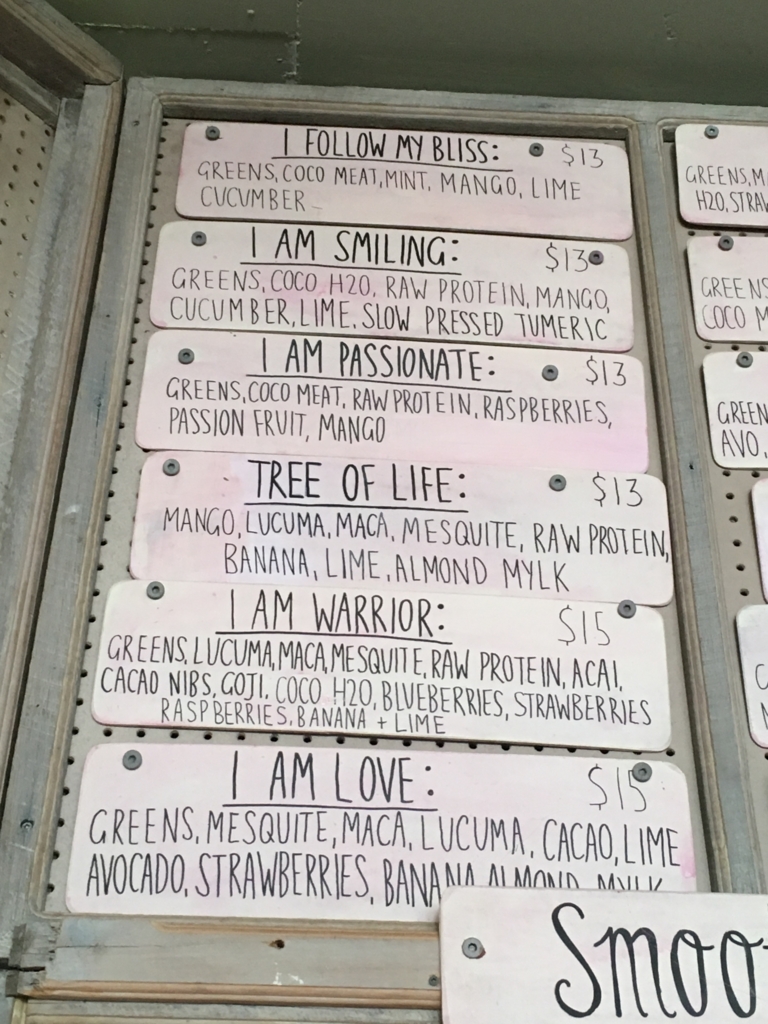 I FOLLOW MY BLISS: $13
GREENS, COCO MEAT, MINT, MANGO, LIME
CUCUMBER
I AM SMILING: $13
GREENS, COCO H2O, RAW PROTEIN, MANGO,
CUCUMBER, LIME, SLOW PRESSED TUMERIC
I AM PASSIONATE: $13
GREENS, COCO MEAT, RAW PROTEIN, RASPBERRIES,
PASSION FRUIT, MANGO
TREE OF LIFE: $13
MANGO, LUCUMA, MACA, MESQUITE, RAW PROTEIN,
BANANA, LIME, ALMOND MYLK
I AM WARRIOR: $15
GREENS, LUCUMA, MACA, MESQUITE, RAW PROTEIN, ACAI,
CACAO NIBS, GOJI, COCO H2O, BLUEBERRIES, STRAWBERRIES
RASPBERRIES, BANANA + LIME
I AM LOVE: $15
GREENS, MESQUITE, MACA, LUCUMA, CACAO, LIME
AVOCADO, STRAWBERRIES, BANANA ALMOND MYLK
Smoo
GREENS, M
H2O, STRAW
GREENS
COCO M
GREEN
AVO,